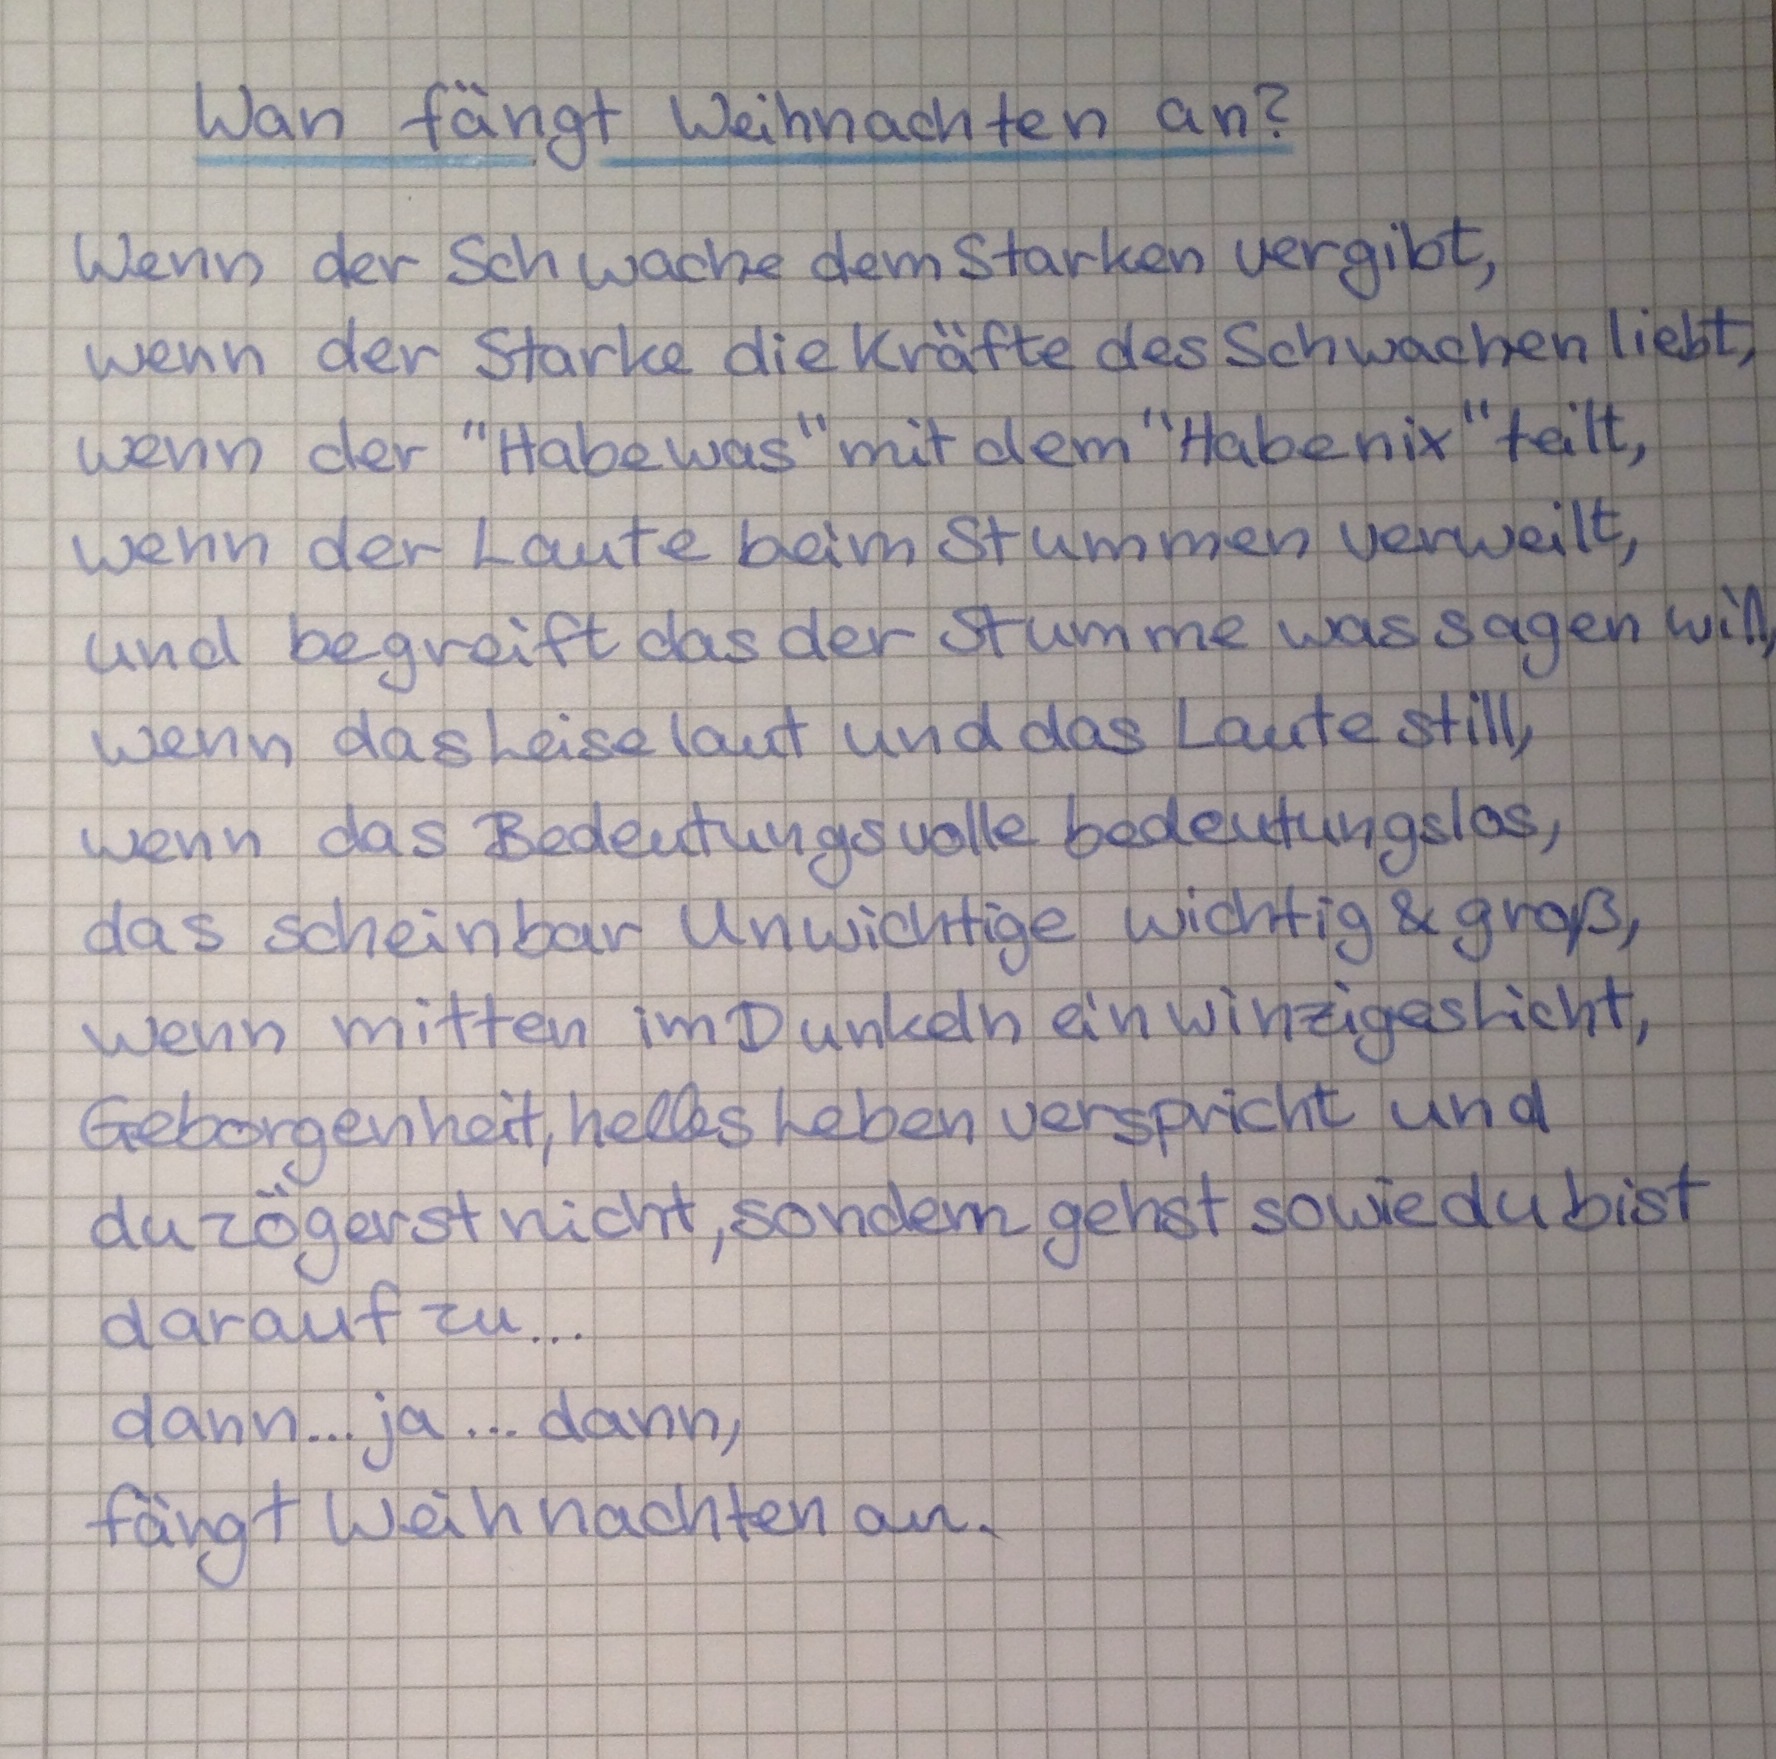 Wan fängt Weihnachten an?
Wenn der Schwache dem Starken vergibt,
wenn der Starke die Kräfte des Schwachen liebt,
wenn der "Habewas" mit dem "Habenix" teilt,
wenn der Laute beim Stummen verweilt,
und begreift das der Stumme was sagen will,
wenn das Leise laut und das Laute still,
wenn das Bedeutungsvolle bedeutungslos,
das scheinbar Unwichtige wichtig & groß,
wenn mitten im Dunkeln ein winziges Licht,
Geborgenheit, helles Leben verspricht und
du zögerst nicht, sondern gehst so wie du bist
darauf zu...
dann... ja... dann,
fängt Weihnachten an.